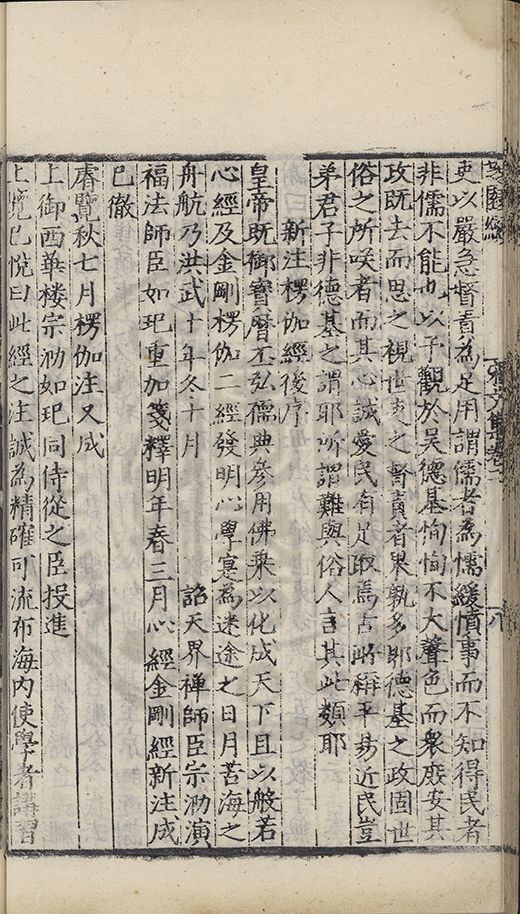 吏以嚴急督責為足用謂儒者為懦緩憒事而不知得民者
非儒不能也以予觀於吳德基恂恂不大聲色而衆庶安其
政既去而思之視世吏之督責者果孰多耶德基之政固世
俗之所咲者而其心誠愛民有足取焉古所稱平易近民豈
弟君子非德基之謂耶所謂難與俗人言其此類耶
新注楞伽經後序
皇帝既御寶曆丕弘儒典參用佛乗以化成天下且以般若
心經及金剛楞伽二經發明心學寔為迷途之日月苦海之
舟航乃洪武十年冬十月 詔天界禅師臣宗泐演
福法師臣如玘重加箋釋明年春三月心經金剛經新注成
已徹
睿覽秋七月楞伽注又成
上御西華楼宗泐如玘同侍從之臣投進
上覽已悅曰此經之注誠為精確可流布海內使學者講習